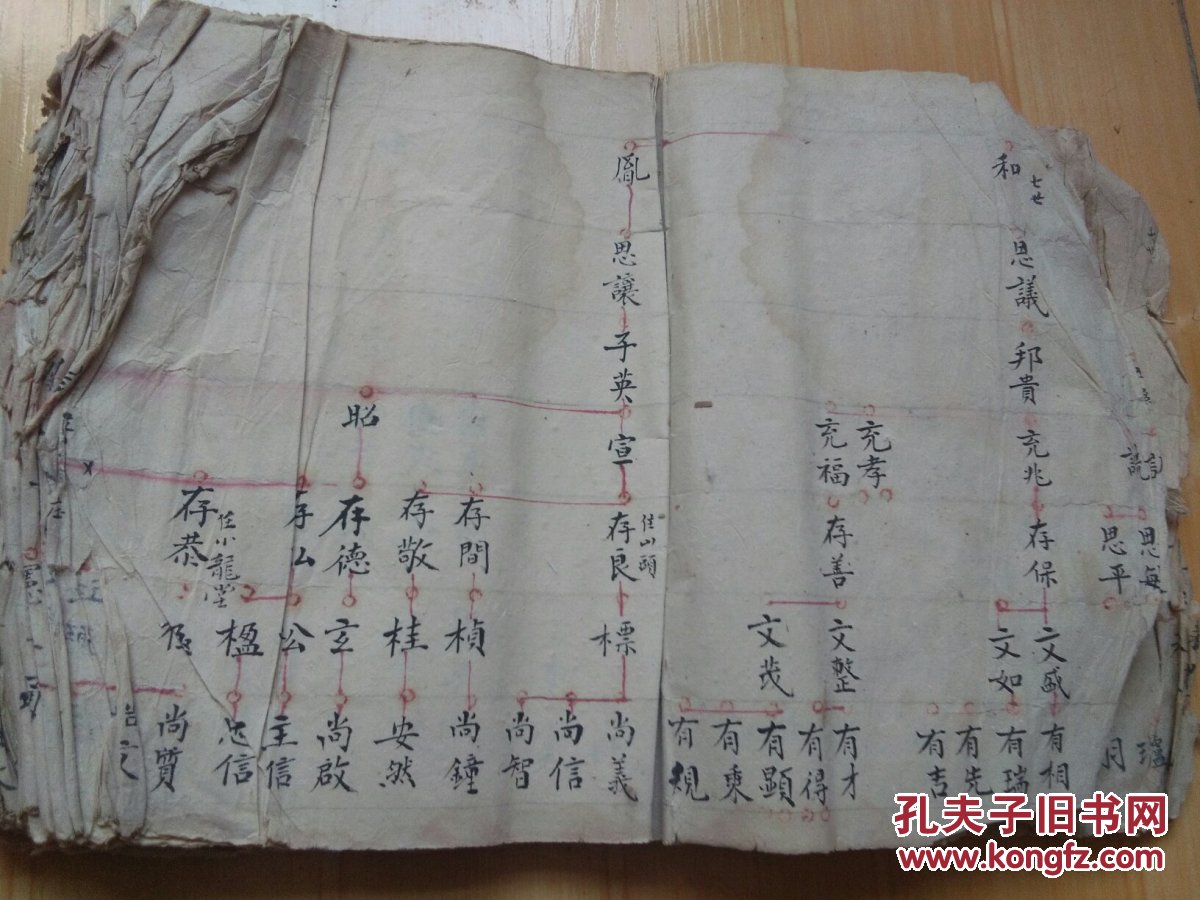 和
七世
思議
邦貴
充兆
存保
文盛
文如
有相
有瑞
有先
有吉
思平
月
充孝
充福
存善
文整
文茂
有才
有得
有顕
有乗
有規
胤
思讓
子英
宣
存良
住山頭
標
尚義
尚信
尚智
存間
楨
尚鐘
存敬
桂
安然
昭
存德
玄
尚啟
公
主信
楹
忠信
存恭
住小龍堂
尚質
孔夫子旧书网
www.kongfz.com